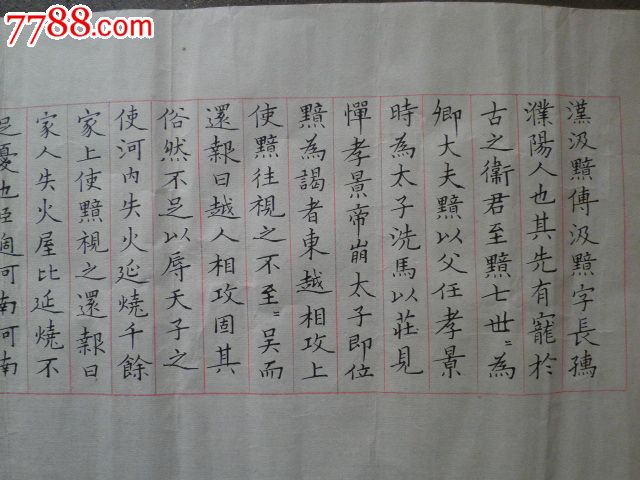 7788.com
漢汲黯傳汲黯字長孺
濮陽人也其先有寵於
古之衞君至黯七世〻為
卿大夫黯以父任孝景
時為太子洗馬以莊見
憚孝景帝崩太子即位
黯為謁者東越相攻上
使黯往視之不至〻吳而
還報曰越人相攻固其
俗然不足以辱天子之
使河內失火延燒千餘
家上使黯視之還報曰
家人失火屋比延燒不
足憂也臣過河南河南